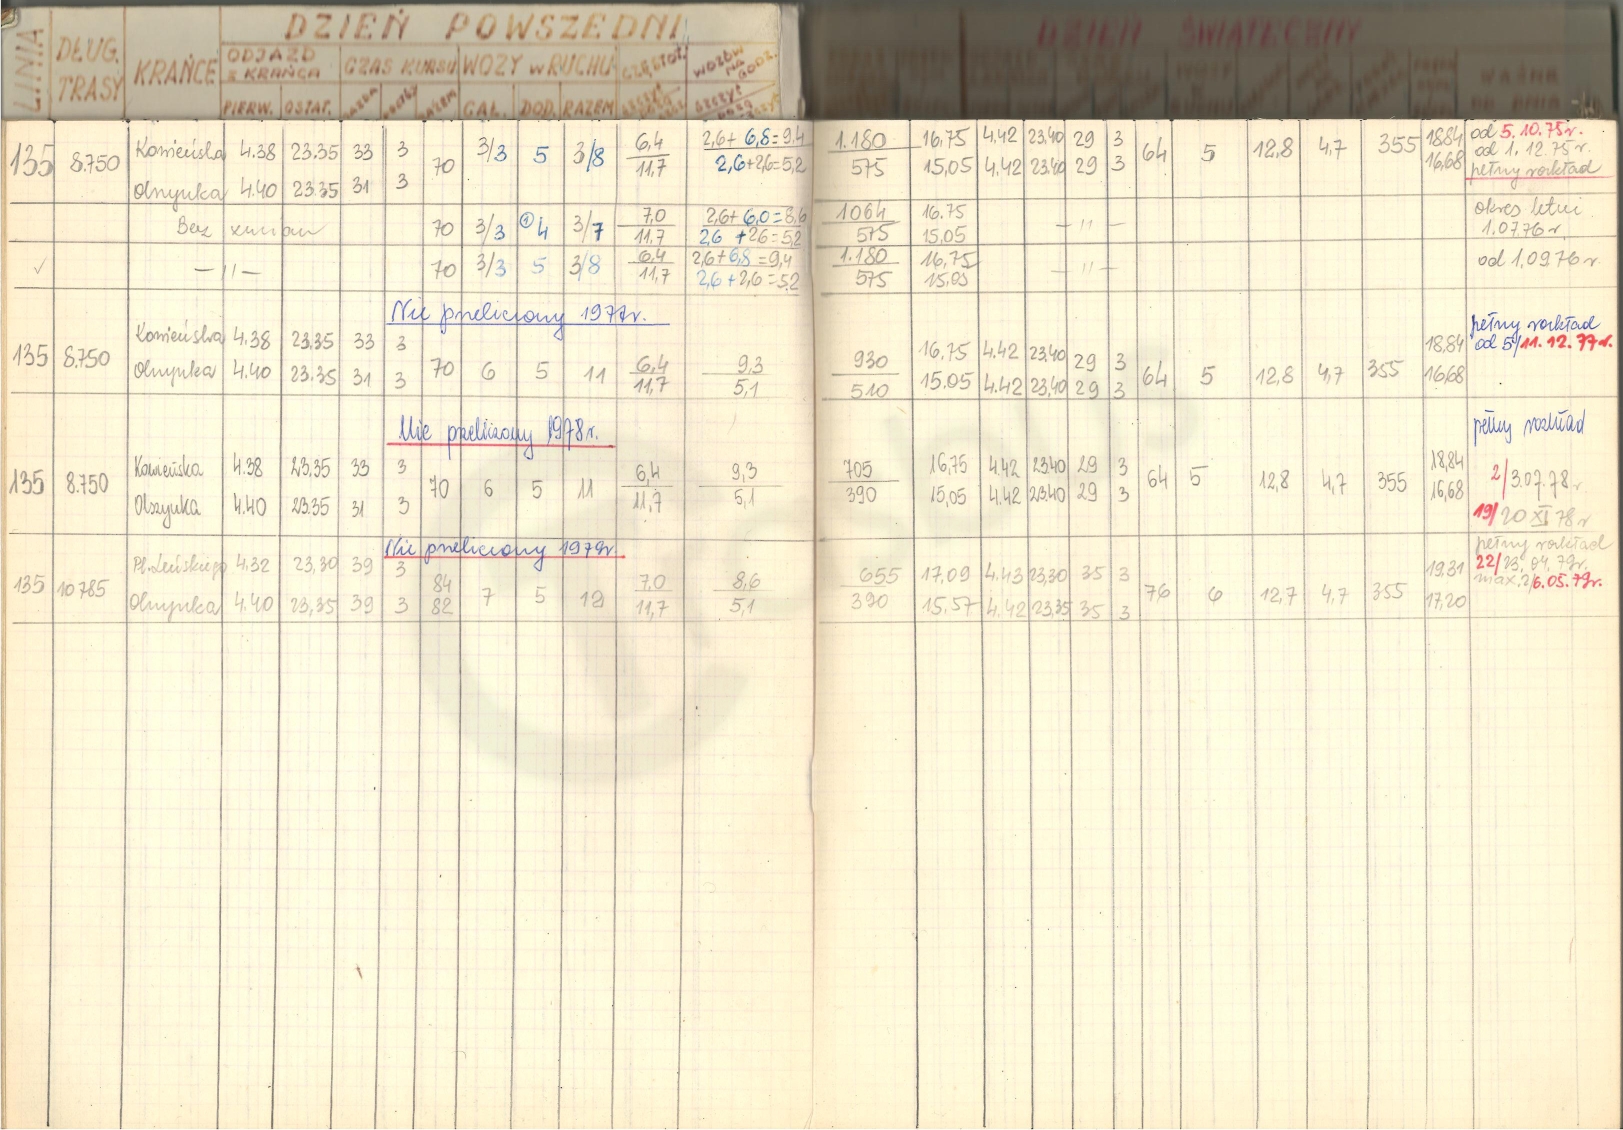 LINIA DŁUG. TRASY KRAŃCE DZIEŃ POWSZEDNI DZIEŃ ŚWIĄTECZNY
ODJAZD z KRAŃCA CZAS KURSU WOZY w RUCHU CZĘSTOT. WOZÓW NA GODZ. WAŻNE OD DNIA
PIERW. OSTAT. JAZDA RAZEM GAŁ. DOD. RAZEM
135 8.750 Kamieńska 4.38 23.35 33 3 70 3/3 5 3/8 6,4 2,6+6,8=9,4 1.180 16.75 4.42 23.40 29 3 64 5 12,8 4,7 355 18,84 od 5.10.75r.
od 1.12.75r.
Olszynka 4.40 23.35 31 3 11,7 2,6+2,6=5,2 575 15,05 4.42 23.40 29 3 16,68 pełny rozkład
Bez zmian 70 3/3 ① 4 3/7 7,0 2,6+6,0=8,6 1064 16.75 —11— okres letni
11.7 2,6+2,6=5,2 575 15.05 1.07.76r.
✓ —11— 70 3/3 5 3/8 6,4 2,6+6,8=9,4 1.180 16,75 —11— od 1.09.76r.
11,7 2,6+2,6=5,2 575 15.05
Nie przeliczony 1977r.
135 8.750 Kamieńska 4.38 23.35 33 3 70 6 5 11 6,4 9,3 930 16.75 4.42 23.40 29 3 64 5 12,8 4,7 355 18,84 pełny rozkład
od 5/11.12.77r.
Olszynka 4.40 23.35 31 3 11,7 5,1 510 15.05 4.42 23,40 29 3 16,68
Nie przeliczony 1978r.
pełny rozkład
135 8.750 Kamieńska 4.38 23,35 33 3 70 6 5 11 6,4 9,3 705 16,75 4.42 23.40 29 3 64 5 12,8 4,7 355 18,84 2/3.07.78r
Olszynka 4.40 23.35 31 3 11,7 5,1 390 15,05 4.42 23.40 29 3 16,68 19/20 XI 78r
Nie przeliczony 1979r.
pełny rozkład
135 10785 Pl. Leńskiego 4.32 23,30 39 3 84 7 5 12 7,0 8,6 655 17,09 4.43 23,30 35 3 76 6 12,7 4,7 355 19.31 22/23.04.79r.
Olszynka 4.40 23,35 39 3 82 11,7 5,1 390 15.57 4.42 23,35 35 3 17,20 max. 2/6.05.79r.